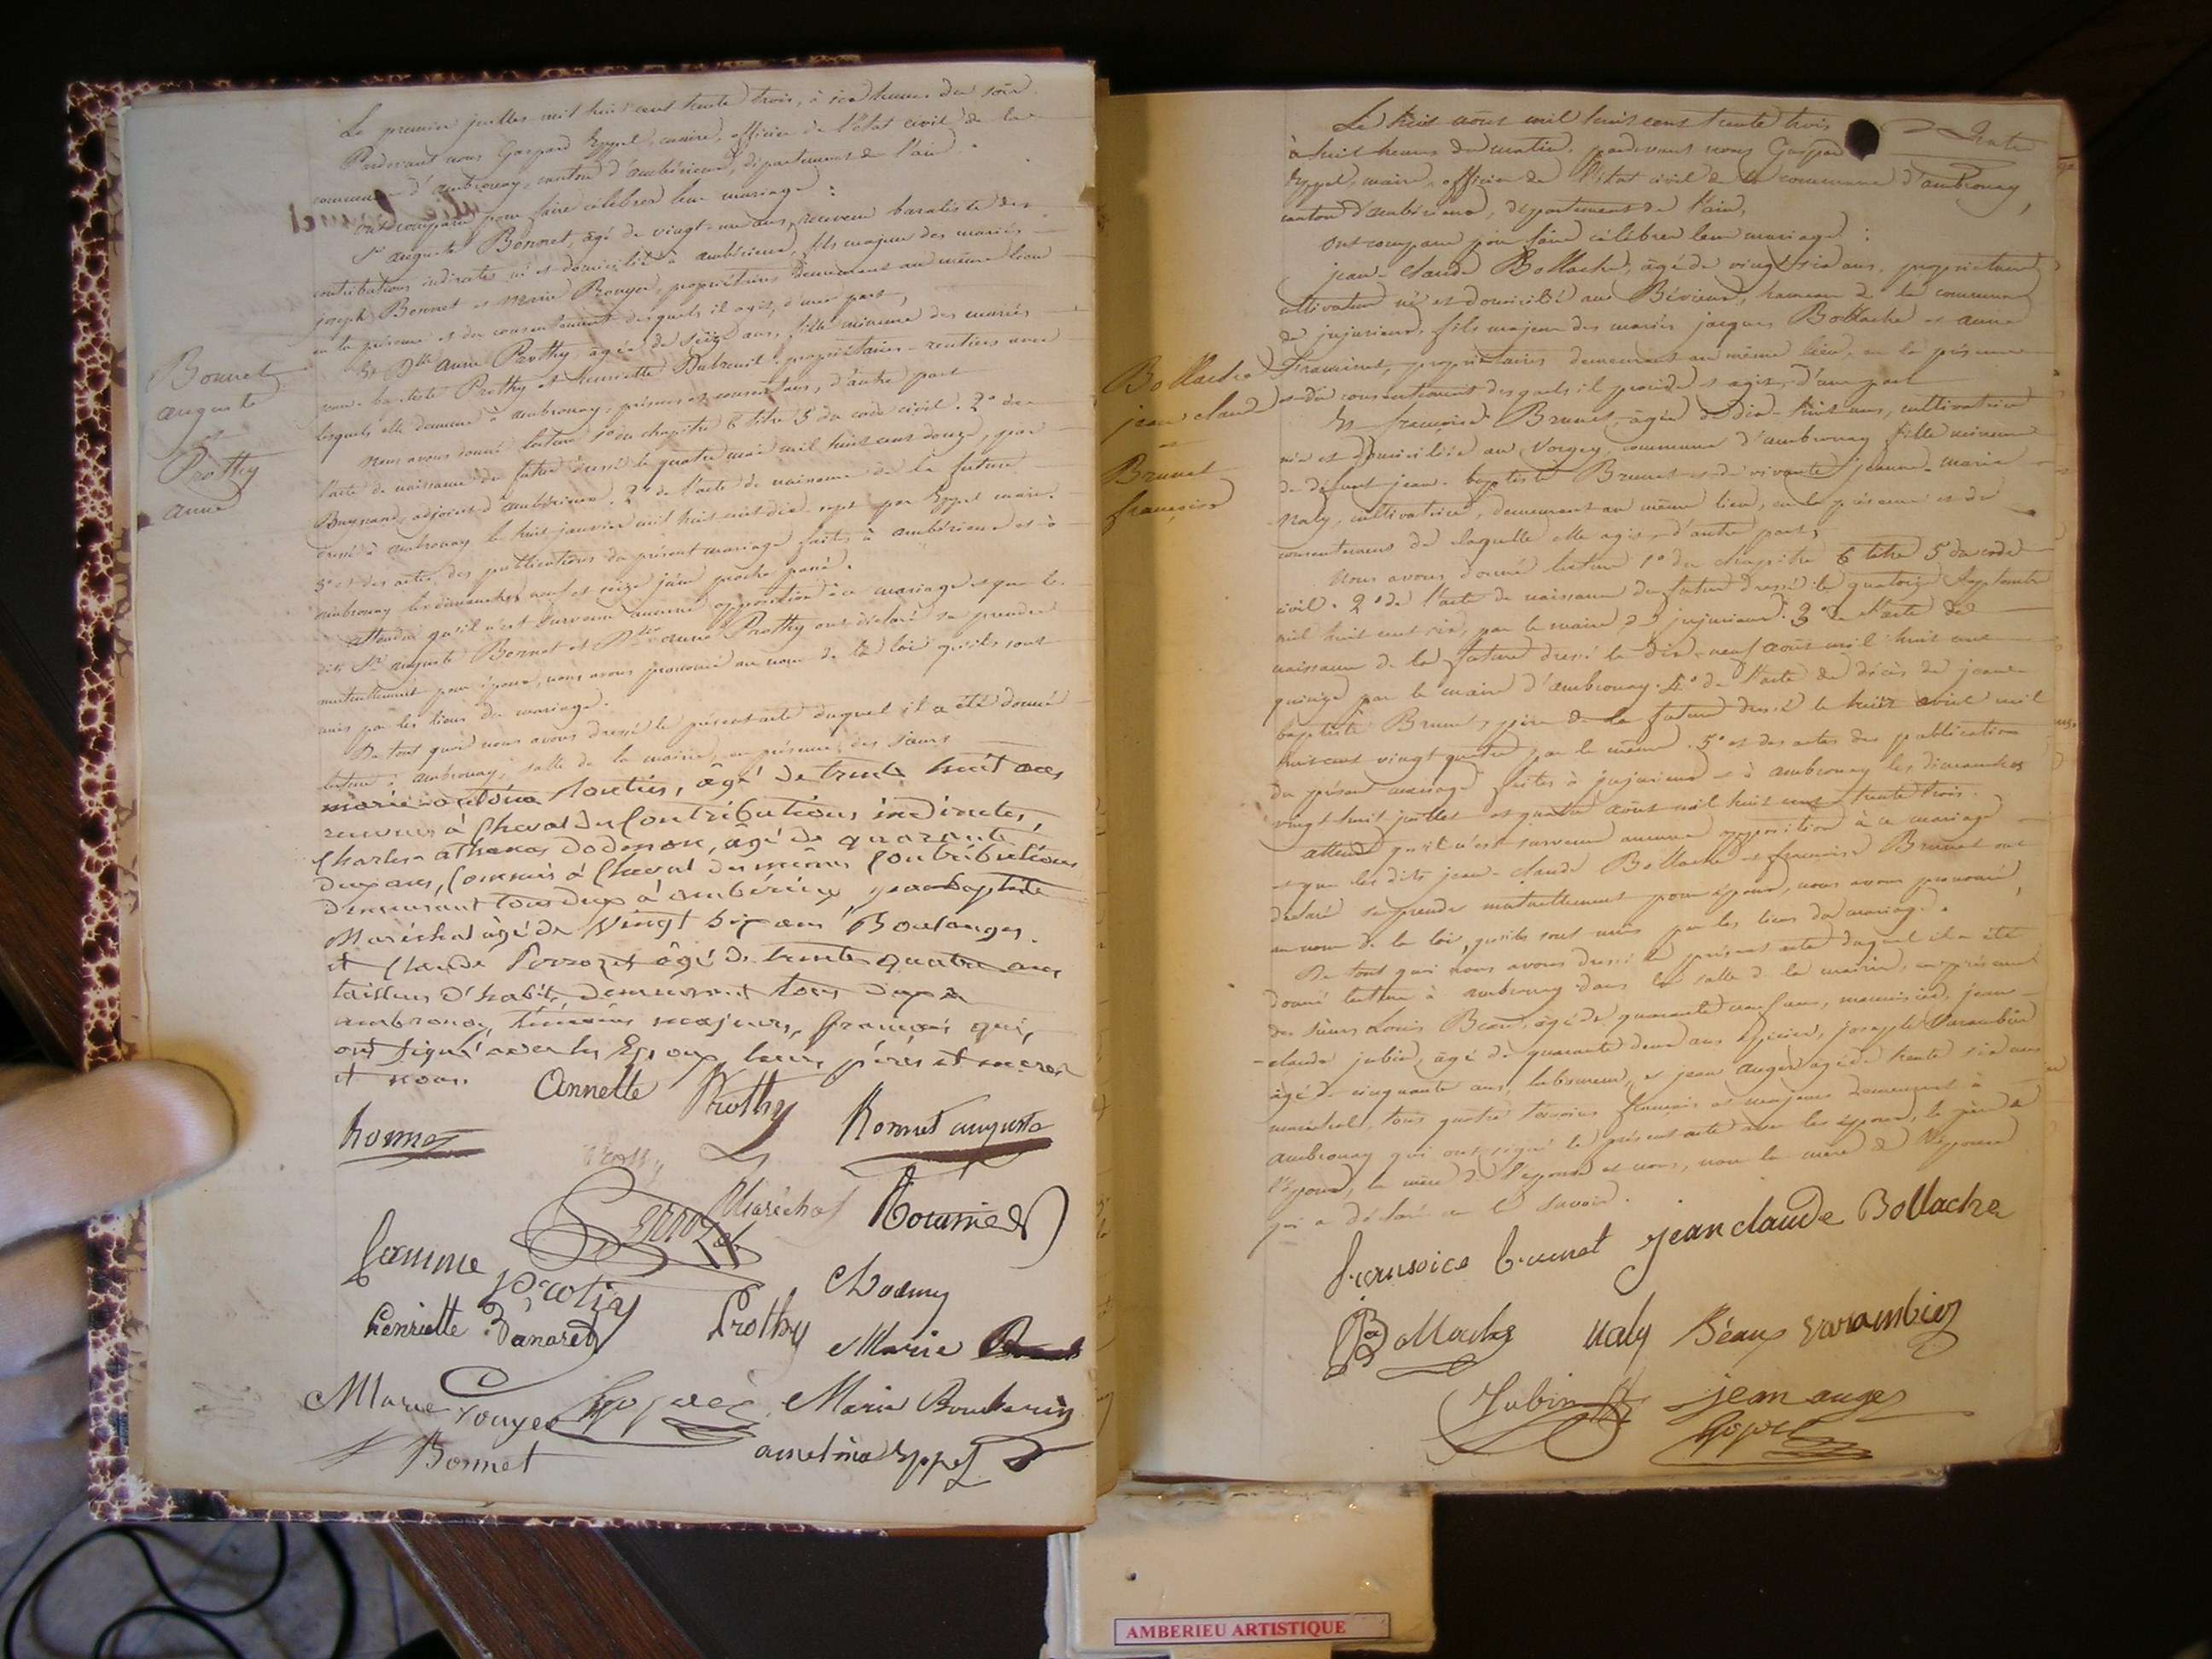 Le premier juillet mil huit cent trente trois, à six heures du soir
Pardevant nous Gaspard Eyppel, maire, officier de l'état civil de la
commune d'ambronay, canton d'ambérieux, département de l'ain.
ont comparu pour faire célébrer leur mariage :
Sr auguste Bonnet, âgé de vingt-un ans, receveur buraliste des
contributions indirectes né et domicilié à ambérieux, fils majeur des mariés
joseph Bonnet et Marie Rouyer, propriétaires demeurant au même lieu
en la présence et du consentement desquels il agit, d'une part,
Et Dlle anne Prothy, âgée de seize ans, fille mineure des mariés
jean-baptiste Prothy et henriette propriétaires-rentiers avec
lesquels elle demeure à ambronay, présents et consentans, d'autre part
Nous avons donné lecture 1° du chapitre 6 titre 5 du code civil. 2° de
l'acte de naissance du futur dressé le quatre mai mil huit cent douze, par
adjoint d'ambérieux. 3° de l'acte de naissance de la future
dressé à ambronay le huit janvier mil huit cent dix-sept par Eyppel maire.
5° et des actes des publications du présent mariage faites à ambérieux et à
ambronay les dimanches neuf et seize juin proche passé.
Attendu qu'il n'est survenu aucune opposition à ce mariage et que les
dits Sr auguste Bonnet et Dlle anne Prothy ont déclaré se prendre
mutuellement pour époux, nous avons prononcé au nom de la loi qu'ils sont
unis par les liens du mariage.
De tout quoi nous avons dressé le présent acte duquel il a été donné
lecture à ambronay, salle de la mairie, en présence des sieurs
marie-antoine âgé de trente huit ans
receveur à Cheval des Contributions indirectes,
Charles athanas Dodenon, âgé de quarante
deux ans, Commis à Cheval des mêmes Contributions
demeurant tous deux à ambérieux, jean baptiste
Maréchal âgé de Vingt six ans Boulanger
et Claude Perrozet âgé de trente quatre ans
tailleur d'habit, demeurant tous deux à
ambronay, témoins majeurs, français qui,
ont signé avec les Epoux, leurs pères et mères
et nous.
Bonnet
auguste
et
Prothy
anne
Annette Prothy Bonnet auguste
Perrozet Maréchal
Prothy
henriette Prothy Marie
Marie Rouyer Eyppel Marie
Bonnet Eyppel
Le huit août mil huit cent trente trois
à huit heures du matin, pardevant nous Gaspard
Eyppel, maire, officier de l'état civil de la commune d'ambronay,
canton d'ambérieux, département de l'ain,
ont comparu pour faire célébrer leur mariage :
jean-claude Bollache, âgé de vingt-six ans, propriétaire
cultivateur né et domicilié au Bévieux, hameau de la commune
de jujurieux, fils majeur des mariés jacques Bollache et anne
propriétaires demeurant au même lieu, en la présence
et du consentement desquels il procède et agit, d'une part
Et françoise Brunet, âgée de dix-huit ans, cultivatrice
née et domiciliée au Vorgey, commune d'ambronay fille mineure
de défunt jean-baptiste Brunet et de vivante jeanne-marie
Naly, cultivatrice, demeurant au même lieu, en la présence et du
consentement de laquelle elle agit, d'autre part,
Nous avons donné lecture 1° du chapitre 6 titre 5 du code
civil. 2° de l'acte de naissance du futur dressé le quatorze septembre
mil huit cent six, par le maire de jujurieux. 3° de l'acte de
naissance de la future dressé le dix-neuf août mil huit cent
quinze par le maire d'ambronay. 4° de l'acte de décès de jean-
baptiste Brunet, père de la future dressé le huit avril mil
huit cent vingt quatre par le même. 5° et des actes des publications
du présent mariage faites à jujurieux et à ambronay les dimanches
vingt-huit juillet et quatre août mil huit cent trente trois.
attendu qu'il n'est survenu aucune opposition à ce mariage
et que les dits jean-claude Bollache et françoise Brunet ont
déclaré se prendre mutuellement pour époux, nous avons prononcé,
au nom de la loi, qu'ils sont unis par les liens du mariage.
De tout quoi nous avons dressé le présent acte duquel il a été
donné lecture à ambronay dans la salle de la mairie, en présence
des sieurs Louis Béaux, âgé de quarante neuf ans, menuisier, jean-
claude jubin, âgé de quarante deux ans épicier, joseph Varambier
âgé de cinquante ans, laboureur, et jean auger âgé de trente six ans
maréchal, tous quatre témoins français et majeurs demeurant à
ambronay qui ont signé le présent acte avec les époux, le père de
l'époux, la mère de l'épouse et nous, non la mère de l'époux
qui a déclaré ne le savoir.
Bollache
jean claude
et
Brunet
françoise
fransoice brunet jean claude Bollache
Bollache naly Béaux varambier
Jubin jean auger
Eyppel
AMBERIEU ARTISTIQUE